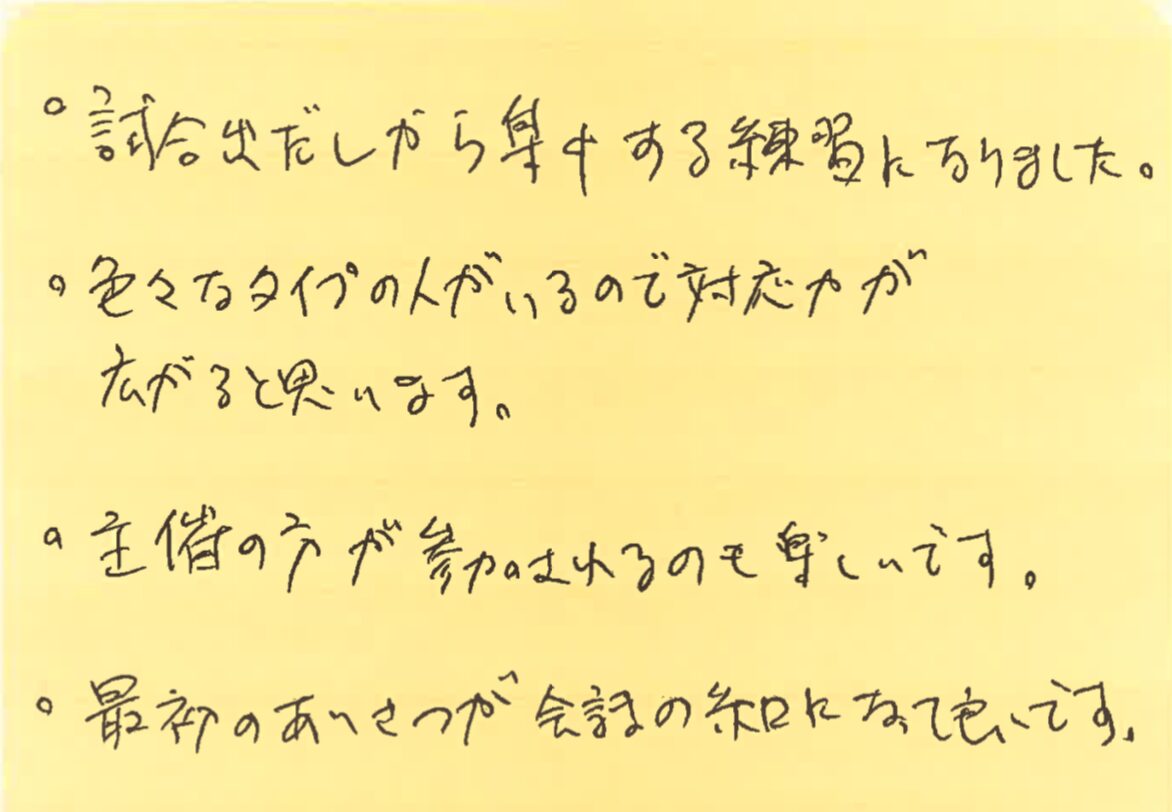 。試合出だしから集中する練習になりました。
。色々なタイプの人がいるので対応力が
広がると思います。
。主催の方が参加されるのも楽しいです。
。最初のあいさつが会話の糸口になって良いです。